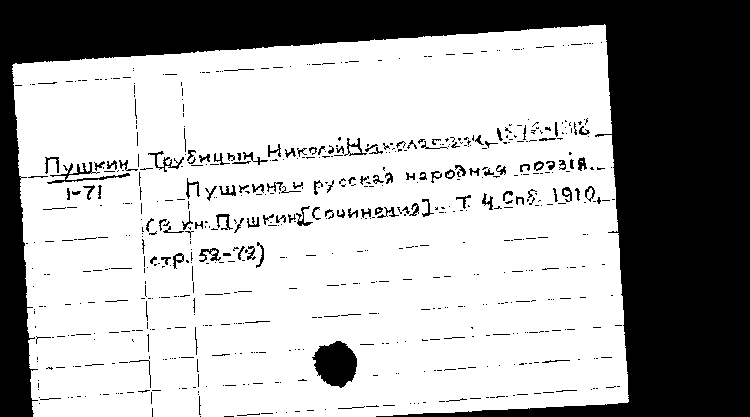 Пушкин
1-71
Трубицын, Николай Николаевич,
Пушкинъ и русская народная поэзія.
(В кн: Пушкин [Сочинения]. Т 4 Спб 1910,
стр. 52-72)